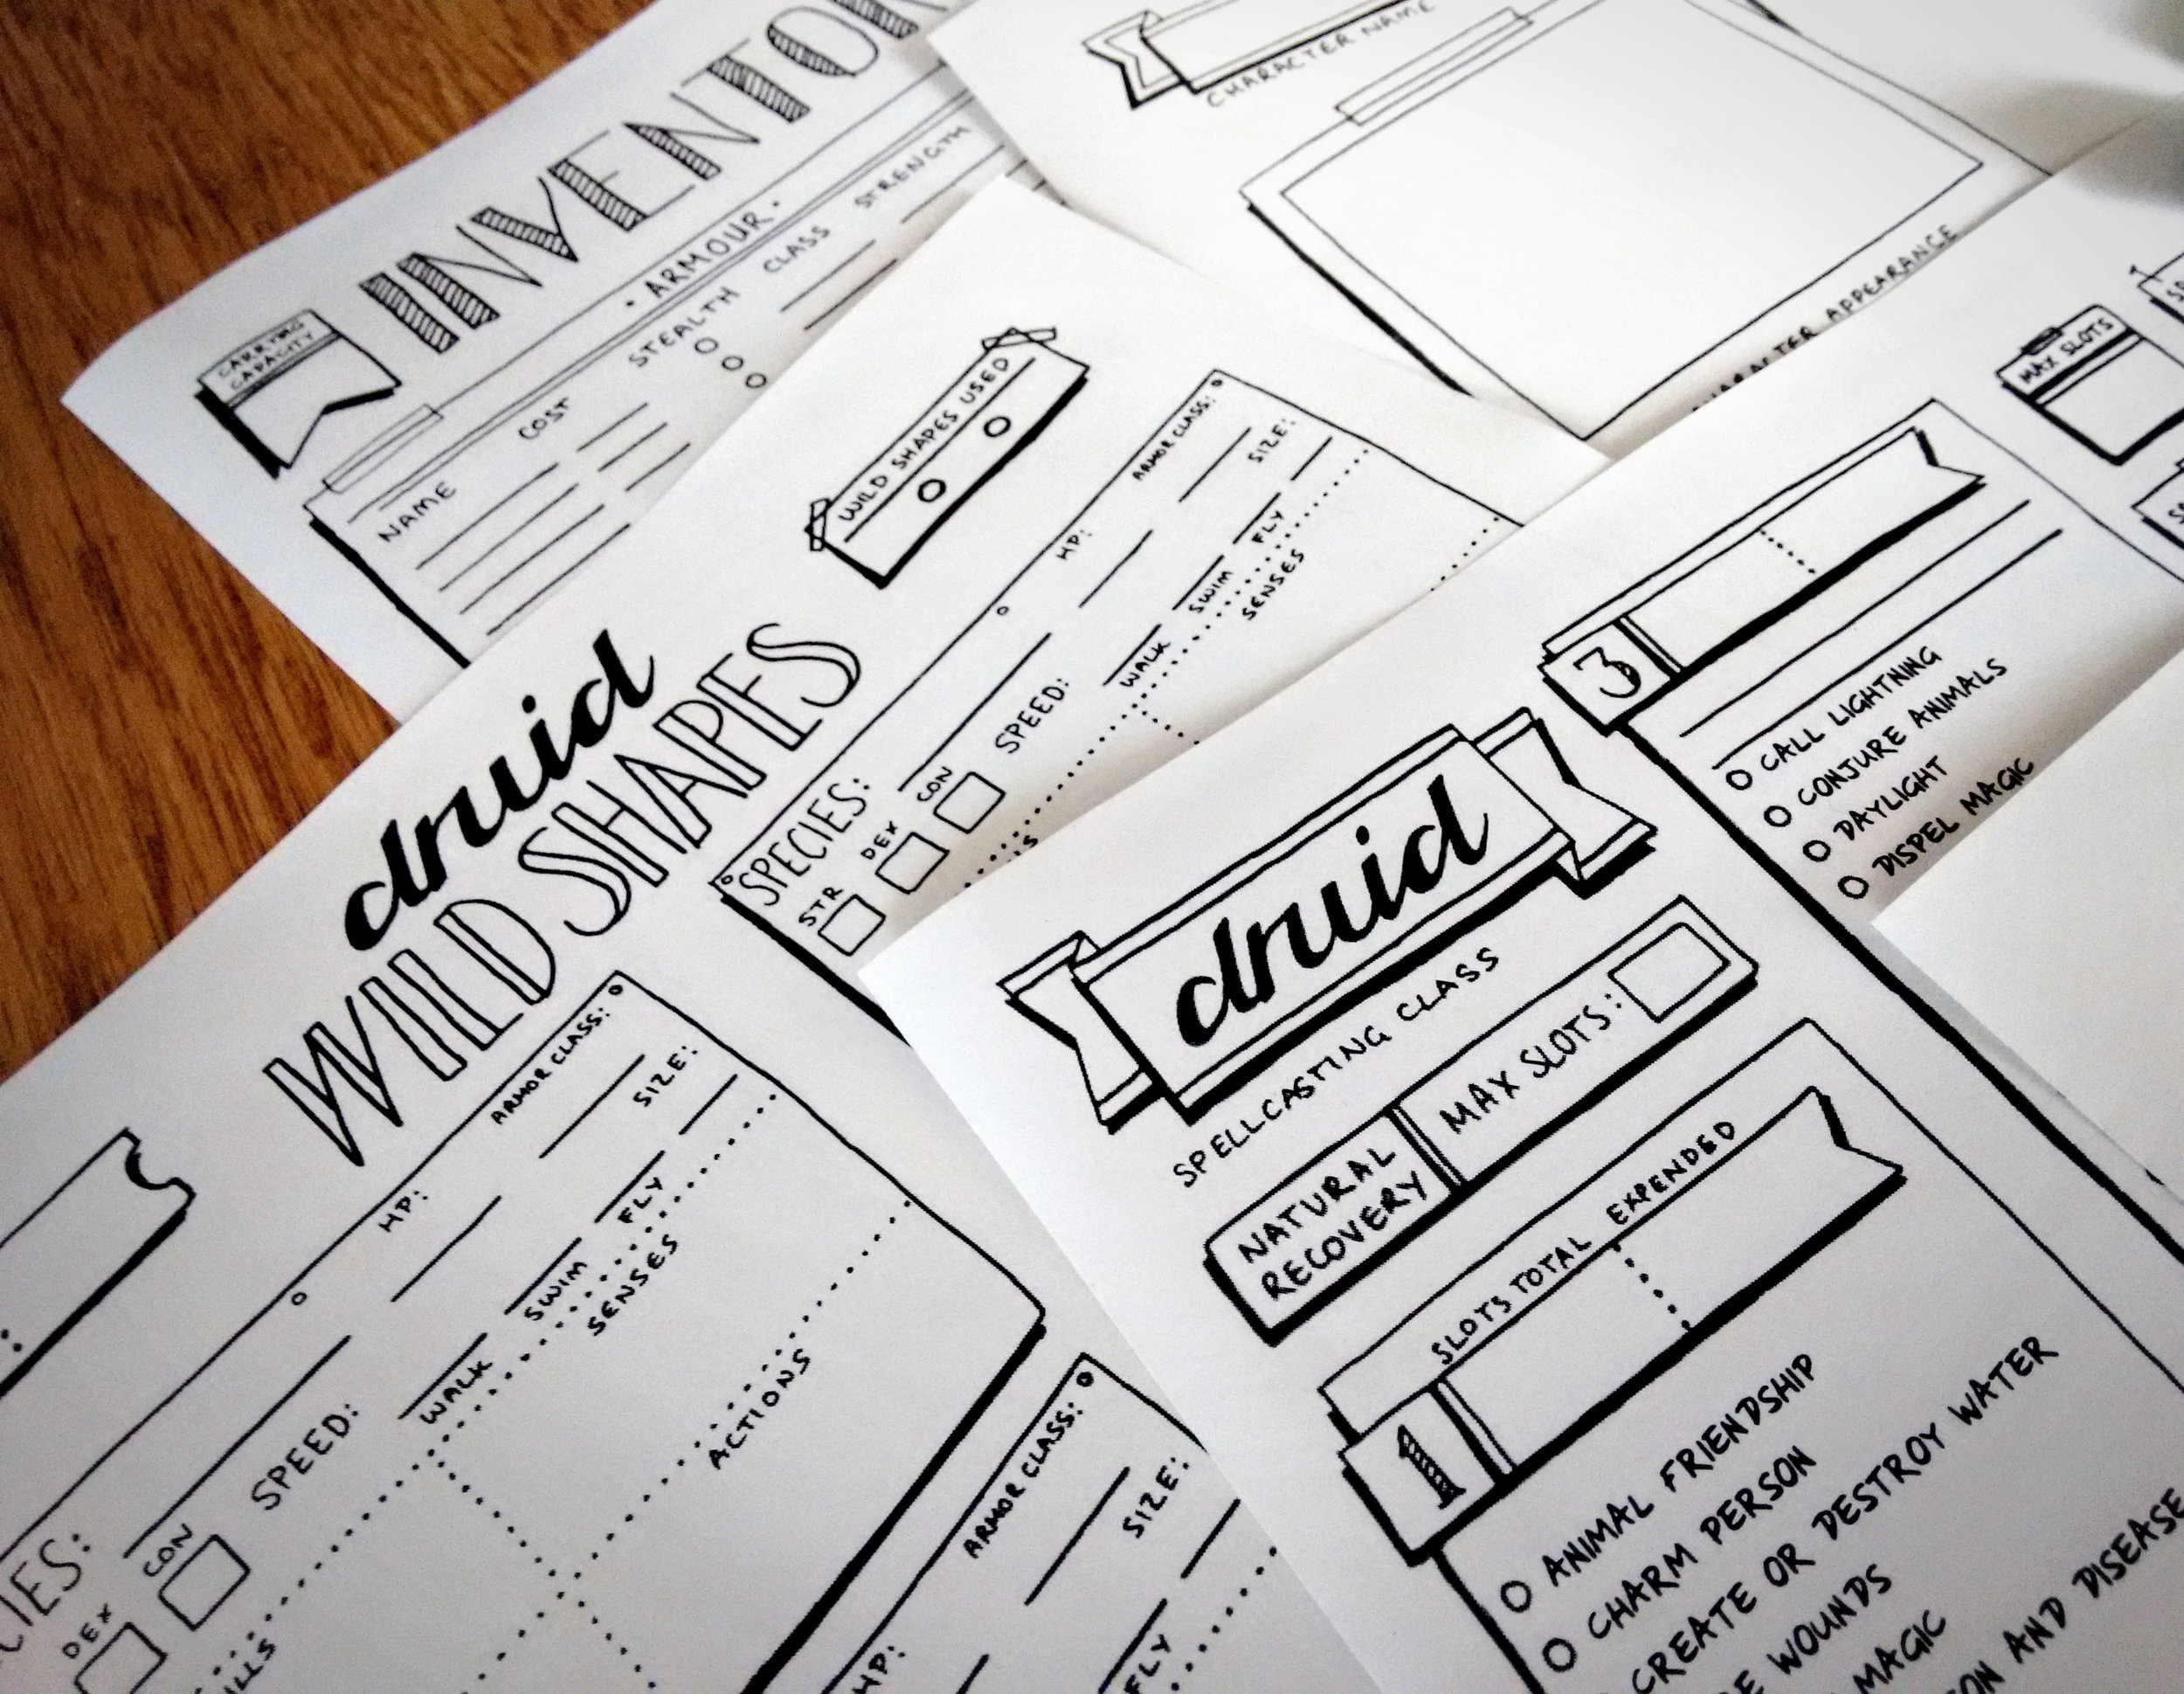 CARRYING
CAPACITY
· ARMOUR ·
NAME
COST
STEALTH
CLASS
STRENGTH
CHARACTER NAME
CHARACTER APPEARANCE
druid
WILD SHAPES
WILD SHAPES USED
SPECIES:
HP:
ARMOR CLASS:
STR
DEX
CON
SPEED:
WALK
SWIM
FLY
SIZE:
SENSES
HP:
ARMOR CLASS:
DEX
CON
SPEED:
WALK
SWIM
FLY
SIZE:
SENSES
ACTIONS
HP:
ARMOR CLASS:
FLY
SIZE:
druid
SPELLCASTING CLASS
NATURAL
RECOVERY
MAX SLOTS:
SLOTS TOTAL EXPENDED
1
ANIMAL FRIENDSHIP
CHARM PERSON
CREATE OR DESTROY WATER
WOUNDS
MAGIC
AND DISEASE
MAX SLOTS
3
CALL LIGHTNING
CONJURE ANIMALS
DAYLIGHT
DISPEL MAGIC